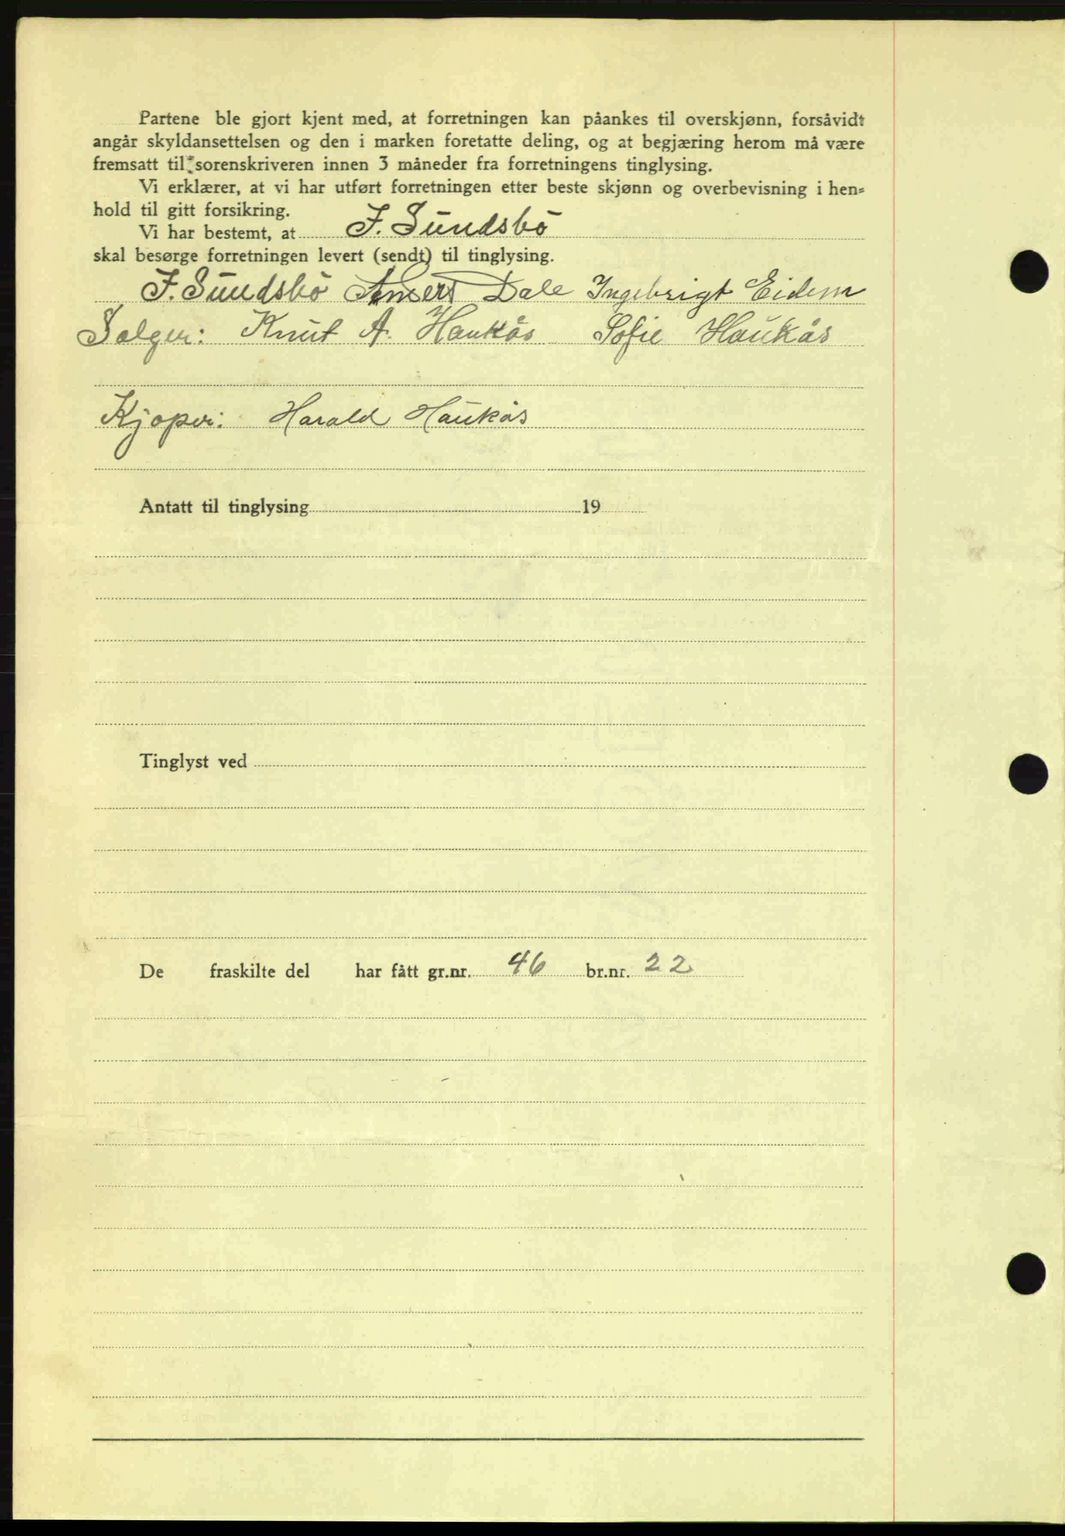 Partene ble gjort kjent med, at forretningen kan påankes til overskjønn, forsåvidt
angår skyldansettelsen og den i marken foretatte deling, og at begjæring herom må være
fremsatt til sorenskriveren innen 3 måneder fra forretningens tinglysing.
Vi erklærer, at vi har utført forretningen etter beste skjønn og overbevisning i hen=
hold til gitt forsikring.
Vi har bestemt, at J. Sundsbö
skal besørge forretningen levert (sendt) til tinglysing.
J. Sundsbö Dale Ingebrigt Eidem
Selger: Knut A. Haukås Sofie Haukås
Kjøper: Harald Haukås
Antatt til tinglysing 19
Tinglyst ved
De fraskilte del har fått gr.nr. 46 br.nr. 22